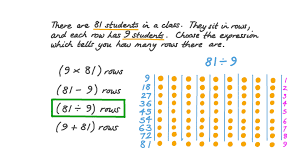 There are 81 students in a class. They sit in rows,
and each row has 9 students. Choose the expression
which tells you how many rows there are.
81 ÷ 9
(9 × 81) rows
(81 − 9) rows
(81 ÷ 9) rows
(9 + 81) rows
9 1
18 2
27 3
36 4
45 5
54 6
63 7
72 8
81 9